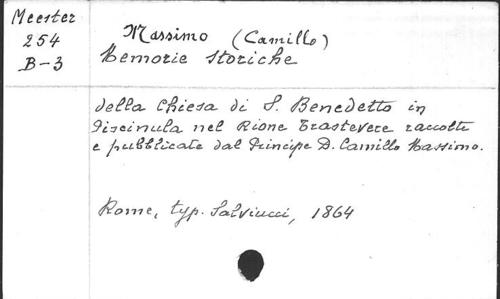 Meester
254
B-3
Massimo (Camillo)
Memorie Storiche
della Chiesa di S. Benedetto in
Piscinula nel Rione Trastevere raccolte
e pubblicate dal Principe D. Camillo Massimo.
Rome, typ. Salviucci, 1864